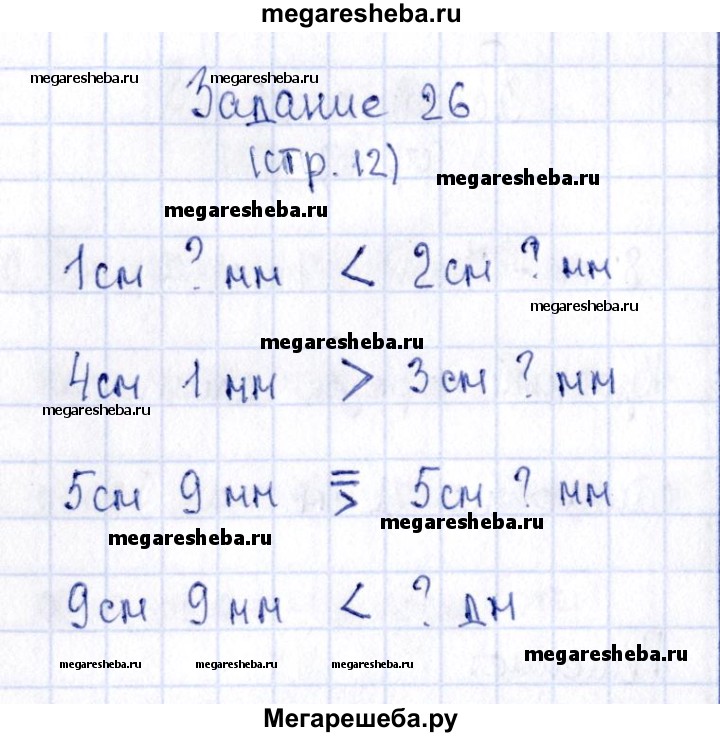 megaresheba.ru
megaresheba.ru megaresheba.ru
Задание 26
(стр. 12)
megaresheba.ru
megaresheba.ru
1см ? мм < 2см ? мм
megaresheba.ru
megaresheba.ru
4см 1 мм > 3см ? мм
megaresheba.ru
5см 9 мм = > 5см ? мм
megaresheba.ru
megaresheba.ru
9см 9 мм < ? дм
megaresheba.ru
megaresheba.ru megaresheba.ru megaresheba.ru
Мегарешеба.ру